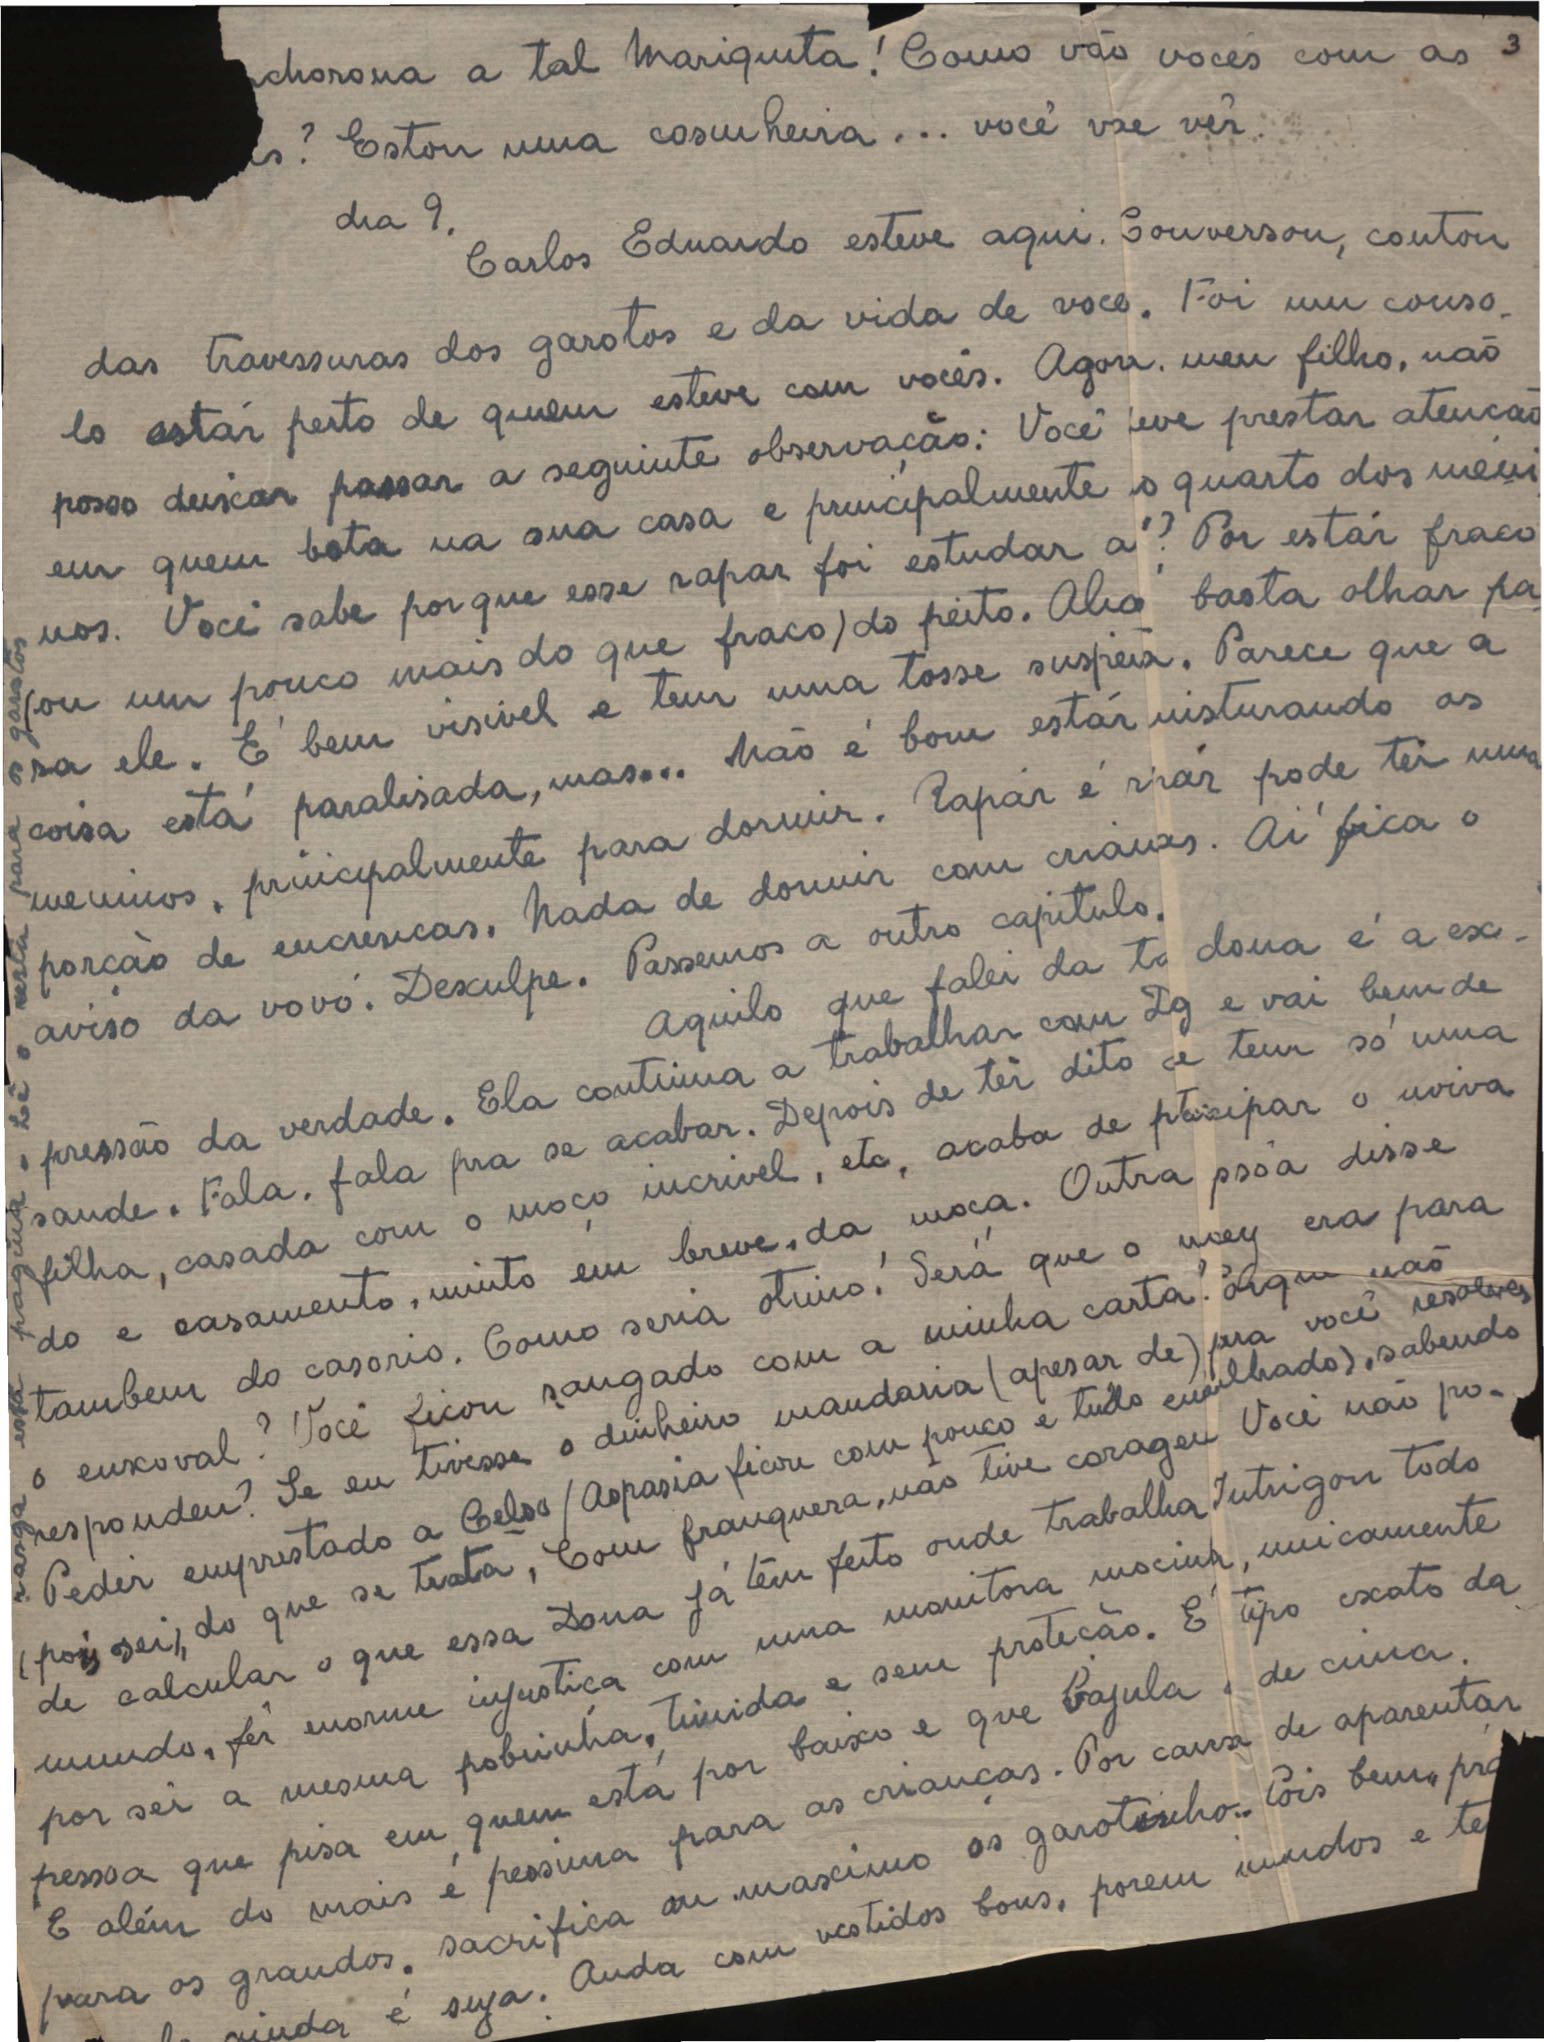 3
chorona a tal Mariquita! Como vão vocês com as
s? Estou uma cosinheira... você vae vêr.
dia 9.
Carlos Eduardo esteve aqui. Conversou, contou
das travessuras dos garotos e da vida de voce. Foi um conso-
lo estár perto de quem esteve com vocês. Agora, meu filho, não
posso deixar passar a seguinte observação: Você deve prestar atenção
em quem bota na sua casa e principalmente o quarto dos meni
nos. Você sabe porque esse rapar foi estudar aí? Por estár fraco
(ou um pouco mais do que fraco) do peito. Aliá basta olhar pa
ra ele. É bem visivel e tem uma tosse suspeita. Parece que a
coisa está paralisada, mas... Não é bom estár misturando os
meninos, principalmente para dormir. Rapár é rapár pode têr uma
porcão de encrencas. Nada de dormir com crianças. Aí fica o
aviso da vovó. Desculpe. Passemos a outro capitulo.
Aquilo que falei da tal dona é a ex-
pressão da verdade. Ela continua a trabalhar com Ig e vai bem de
saude. Fala, fala pra se acabar. Depois de têr dito que tem só uma
filha, casada com o moço incrivel, etc, acaba de participar o noiva
do e casamento, muito em breve, da moca. Outra pssôa disse
tambem do casorio. Como seria otimo! Será que o era para
o enxoval? Você ficou zangado com a minha carta? Porque não
respondeu? Se eu tivesse o dinheiro mandaria (apesar de) pra você resolver
Pedir emprestado a Celso (Aspasia ficou com pouco e tudo encalhado), sabendo
(pois sei), do que se trata, Com franquera, não tive coragem Você não po-
de calcular o que essa Dona já têm feito onde trabalha Intrigou todo
mundo, fêz enorme injustiça com uma monitora mocinha, unicamente
por sêr a mesma pobrinha, timida e sem proteção. É tipo exato da
pessoa que pisa em quem está por baixo e que bajula o de cima.
E além do mais é pessima para as crianças. Por causa de aparentár
para os grandos, sacrifica ao maximo os garotinho. Pois bem, prá
ainda é suja. Anda com vestidos bons, porem imundos e te
rasga esta pagina. Lê o resto para os garotos